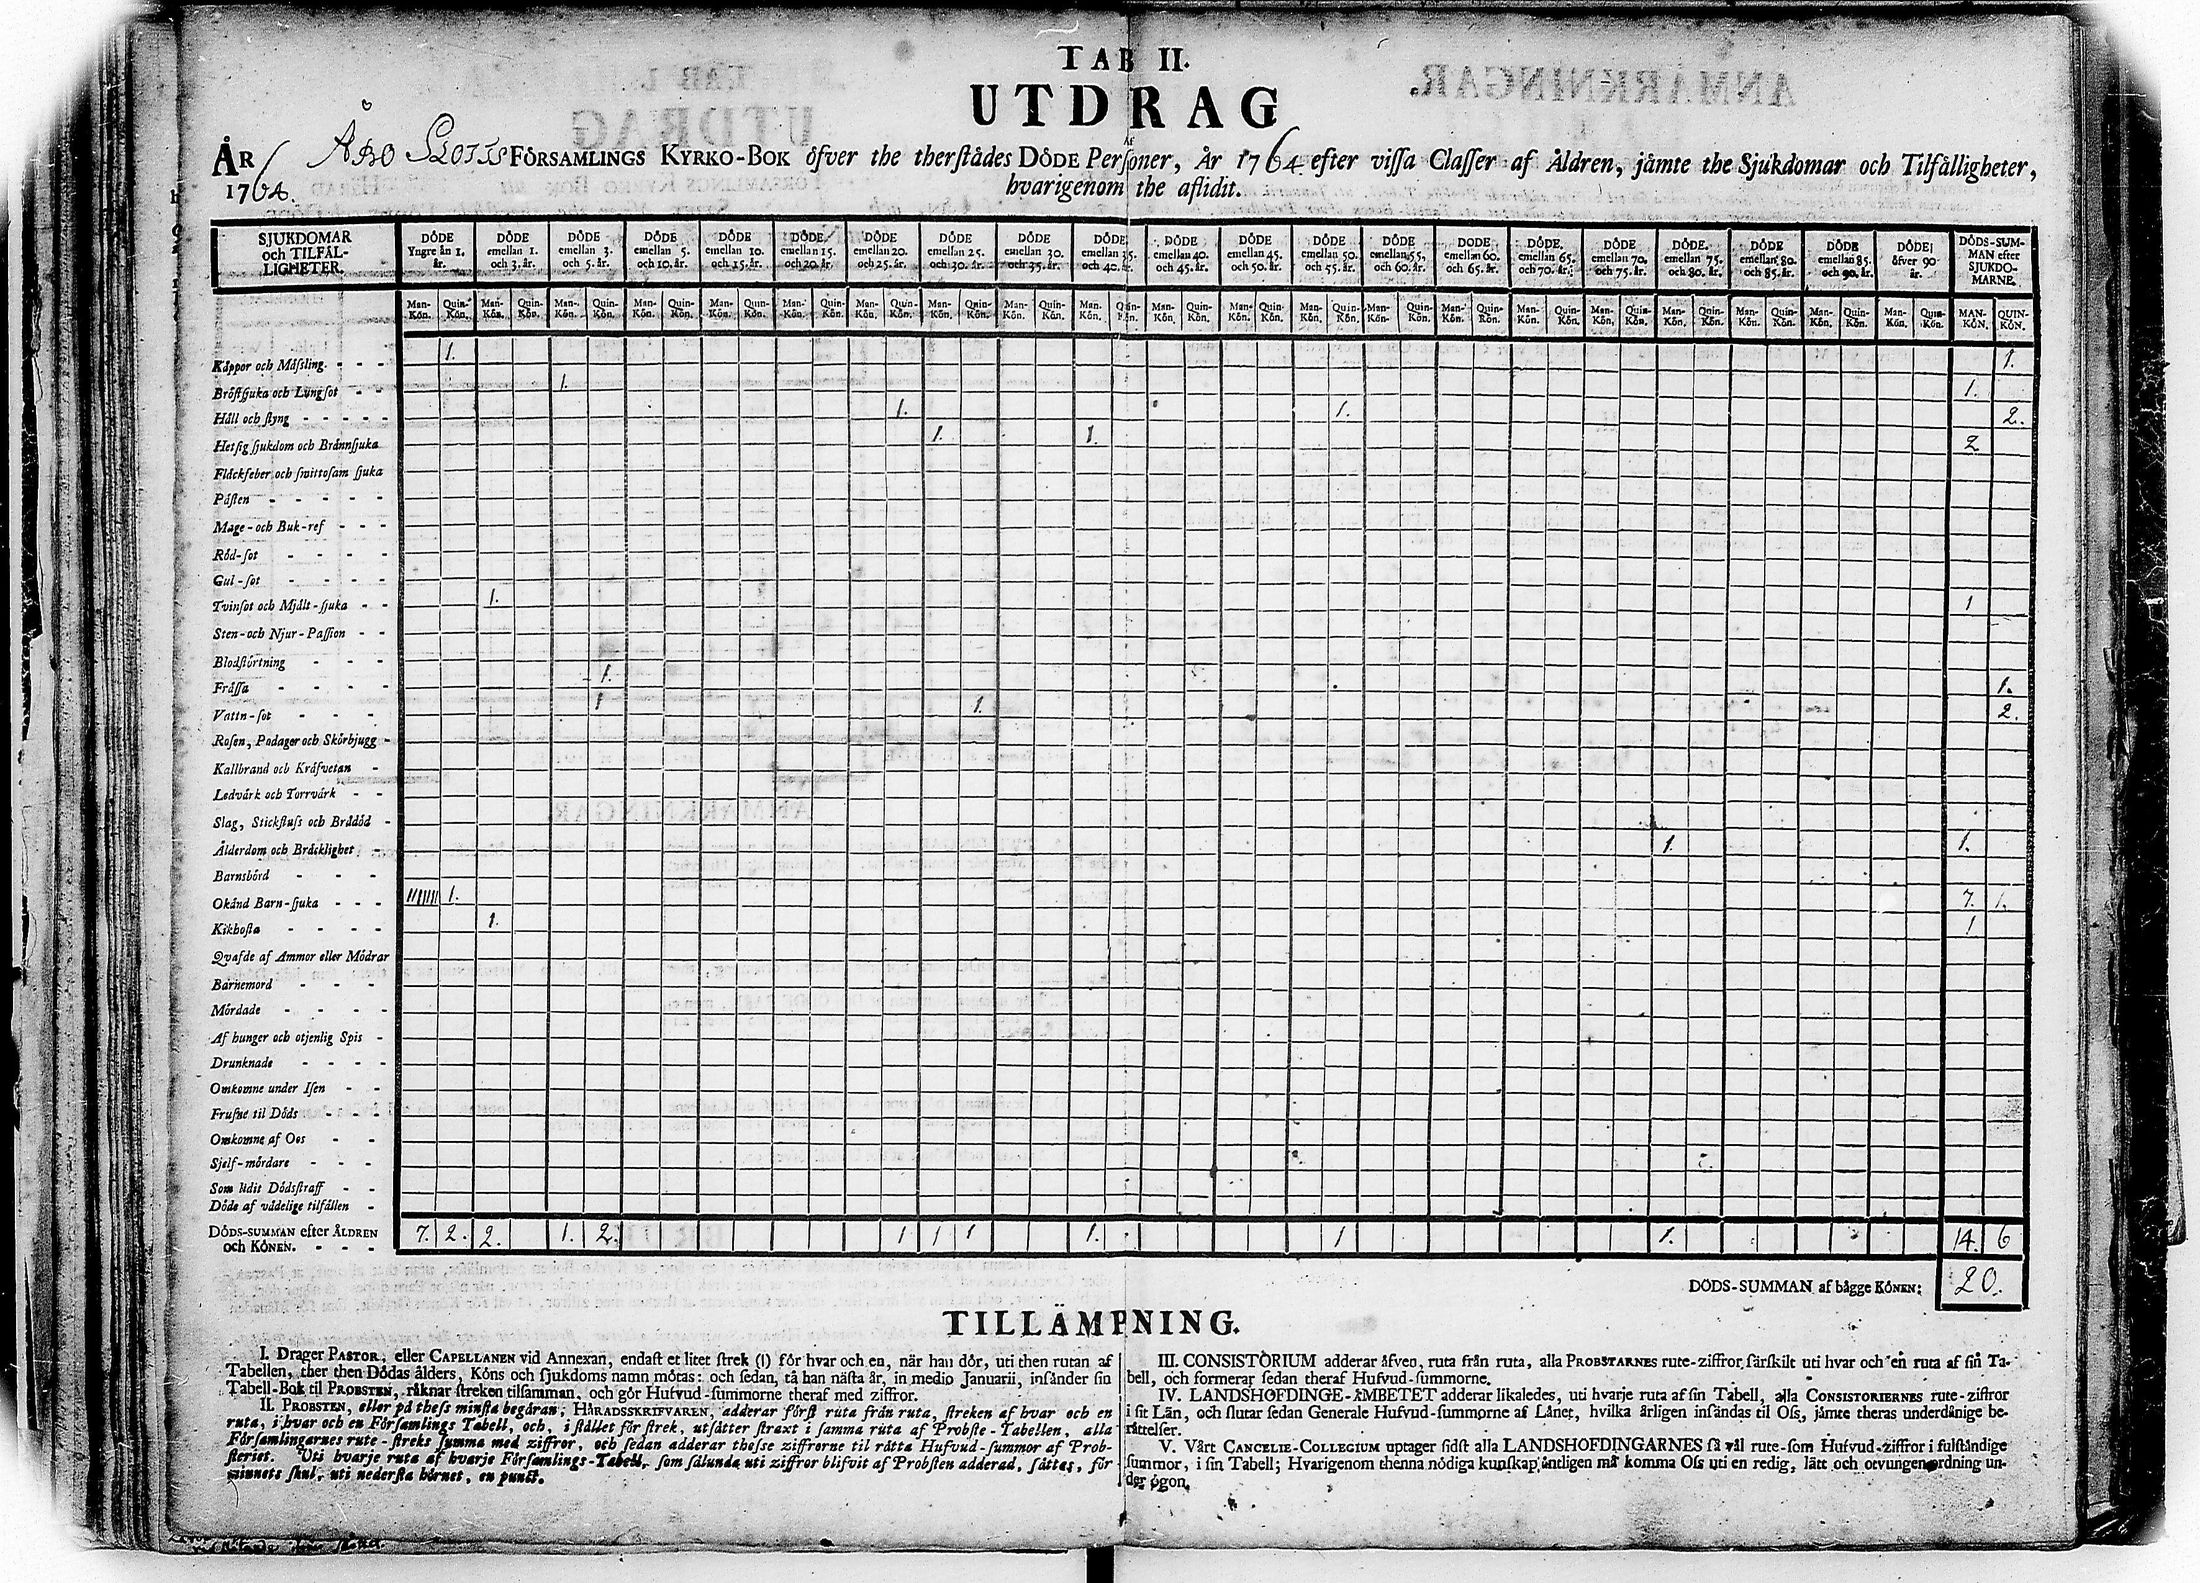 TAB II.
UTDRAG
AF
ÅR
1764.
ÅBO SLOTTS FÖRSAMLINGS KYRKO-BOK öfver the therstådes DÖDE Personer, År 1764 efter vissa Classer af Åldren, jämte the Sjukdomar och Tilfålligheter,
hvarigenom the aflidit.
SJUKDOMAR och TILFÄLLIGHETER. DÖDE Yngre än 1. år. DÖDE emellan 1. och 3. år. DÖDE emellan 3. och 5. år. DÖDE emellan 5. och 10. år. DÖDE emellan 10. och 15. år. DÖDE emellan 15. och 20. år. DÖDE emellan 20. och 25. år. DÖDE emellan 25. och 30. år. DÖDE emellan 30. och 35. år. DÖDE emellan 35. och 40. år. DÖDE emellan 40. och 45. år. DÖDE emellan 45. och 50. år. DÖDE emellan 50. och 55. år. DÖDE emellan 55. och 60. år. DÖDE emellan 60. och 65. år. DÖDE emellan 65. och 70. år. DÖDE emellan 70. och 75. år. DÖDE emellan 75. och 80. år. DÖDE emellan 80. och 85. år. DÖDE emellan 85. och 90. år. DÖDE öfver 90 år. DÖDS-SUMMAN efter SJUKDOMARNE.
Man-Kön. Quin-Kön. Man-Kön. Quin-Kön. Man-Kön. Quin-Kön. Man-Kön. Quin-Kön. Man-Kön. Quin-Kön. Man-Kön. Quin-Kön. Man-Kön. Quin-Kön. Man-Kön. Quin-Kön. Man-Kön. Quin-Kön. Man-Kön. Quin-Kön. Man-Kön. Quin-Kön. Man-Kön. Quin-Kön. Man-Kön. Quin-Kön. Man-Kön. Quin-Kön. Man-Kön. Quin-Kön. Man-Kön. Quin-Kön. Man-Kön. Quin-Kön. Man-Kön. Quin-Kön. Man-Kön. Quin-Kön. Man-Kön. Quin-Kön. Man-Kön. Quin-Kön. MAN-KÖN. QUIN-KÖN.
Kåppor och Måssling - - - 1. 1.
Bröstsjuka och Lungsot - - 1. 1.
Håll och styng - - - - - 1. 1. 2.
Hetsig sjukdom och Brännsjuka 1. 1. 2
Fläckfeber och smittosam sjuka
Pästen - - - - -
Mage-och Buk-ref - - -
Röd-sot - - - -
Gul-sot - - - -
Tvinsot och Mjält-sjuka - - 1. 1
Sten-och Njur-Passion - -
Blodstörtning - - -
Frässa - - - - 1. 1.
Vattn-sot - - - 1 1. 2.
Rosen, Podager och Skörbjugg -
Kallbrand och Kräfvetan -
Ledvärk och Torrvärk - -
Slag, Stickfluss och Brådöd -
Ålderdom och Bräcklighet - 1. 1.
Barnsbörd - - -
Okänd Barn-sjuka - - - ||||||| 1. 7. 1.
Kikhosta - - - - 1. 1
Qvafde af Ammor eller Mödrar
Barnemord - - -
Mördade - - - -
Af hunger och otjenlig Spis -
Drunknade - - - -
Omkomne under Isen - -
Frusne til Döds - - -
Omkomne af Oos - -
Sjelf-mördare - - -
Som lidit Dödsstraff - -
Döde af vådelige tilfällen -
DÖDS-SUMMAN efter ÅLDREN och KÖNEN. - - - 7. 2. 2. 1. 2. 1 1 1 1. 1 1. 14. 6
DÖDS-SUMMAN af bägge KÖNEN: 20.
TILLÄMPNING.
I. Drager PASTOR, eller CAPELLANEN vid Annexan, endast et litet strek (I) för hvar och en, när han dör, uti then rutan af
Tabellen, ther then Dödas ålders, Köns och sjukdoms namn mötas: och sedan, tå han nästa år, in medio Januarii, insänder sin
Tabell-Bok til PROBSTEN, räknar streken tilsamman, och gör Hufvud-summorne theraf med ziffror.
II. PROBSTEN, eller på thess minsta begäran, HÄRADSSKRIFVAREN, adderar först ruta från ruta, streken af hvar och en
ruta, i hvar och en Församlings Tabell, och, i stället för strek, utsätter straxt i samma ruta af Probste-Tabellen, alla
Församlingarnes rute-streks summa med ziffror, och sedan adderar thesse ziffrorne til rätta Hufvud-summor af Prob-
steriet. Uti hvarje ruta af hvarje Församlings-Tabell, som sålunda uti ziffror blifvit af Probsten adderad, sättas, för
minnets skul, uti nedersta hörnet, en punct.
III. CONSISTORIUM adderar äfven, ruta från ruta, alla PROBSTARNES rute-ziffror, särskilt uti hvar och en ruta af sin Ta-
bell, och formerar sedan theraf Hufvud-summorne.
IV. LANDSHÖFDINGE-ÄMBETET adderar likaledes, uti hvarje ruta af sin Tabell, alla CONSISTORIERNES rute-ziffror
i sit Län, och slutar sedan Generale Hufvud-summorne af Länet, hvilka årligen insändas til Oss, jämte theras underdånige be-
rättelser.
V. Vårt CANCELIE-COLLEGIUM uptager sidst alla LANDSHÖFDINGARNES så väl rute-som Hufvud-ziffror i fulständige
summor, i sin Tabell; Hvarigenom thenna nödiga kunskap äntligen må komma Oss uti en redig, lätt och otvungen ordning un-
der ögon.